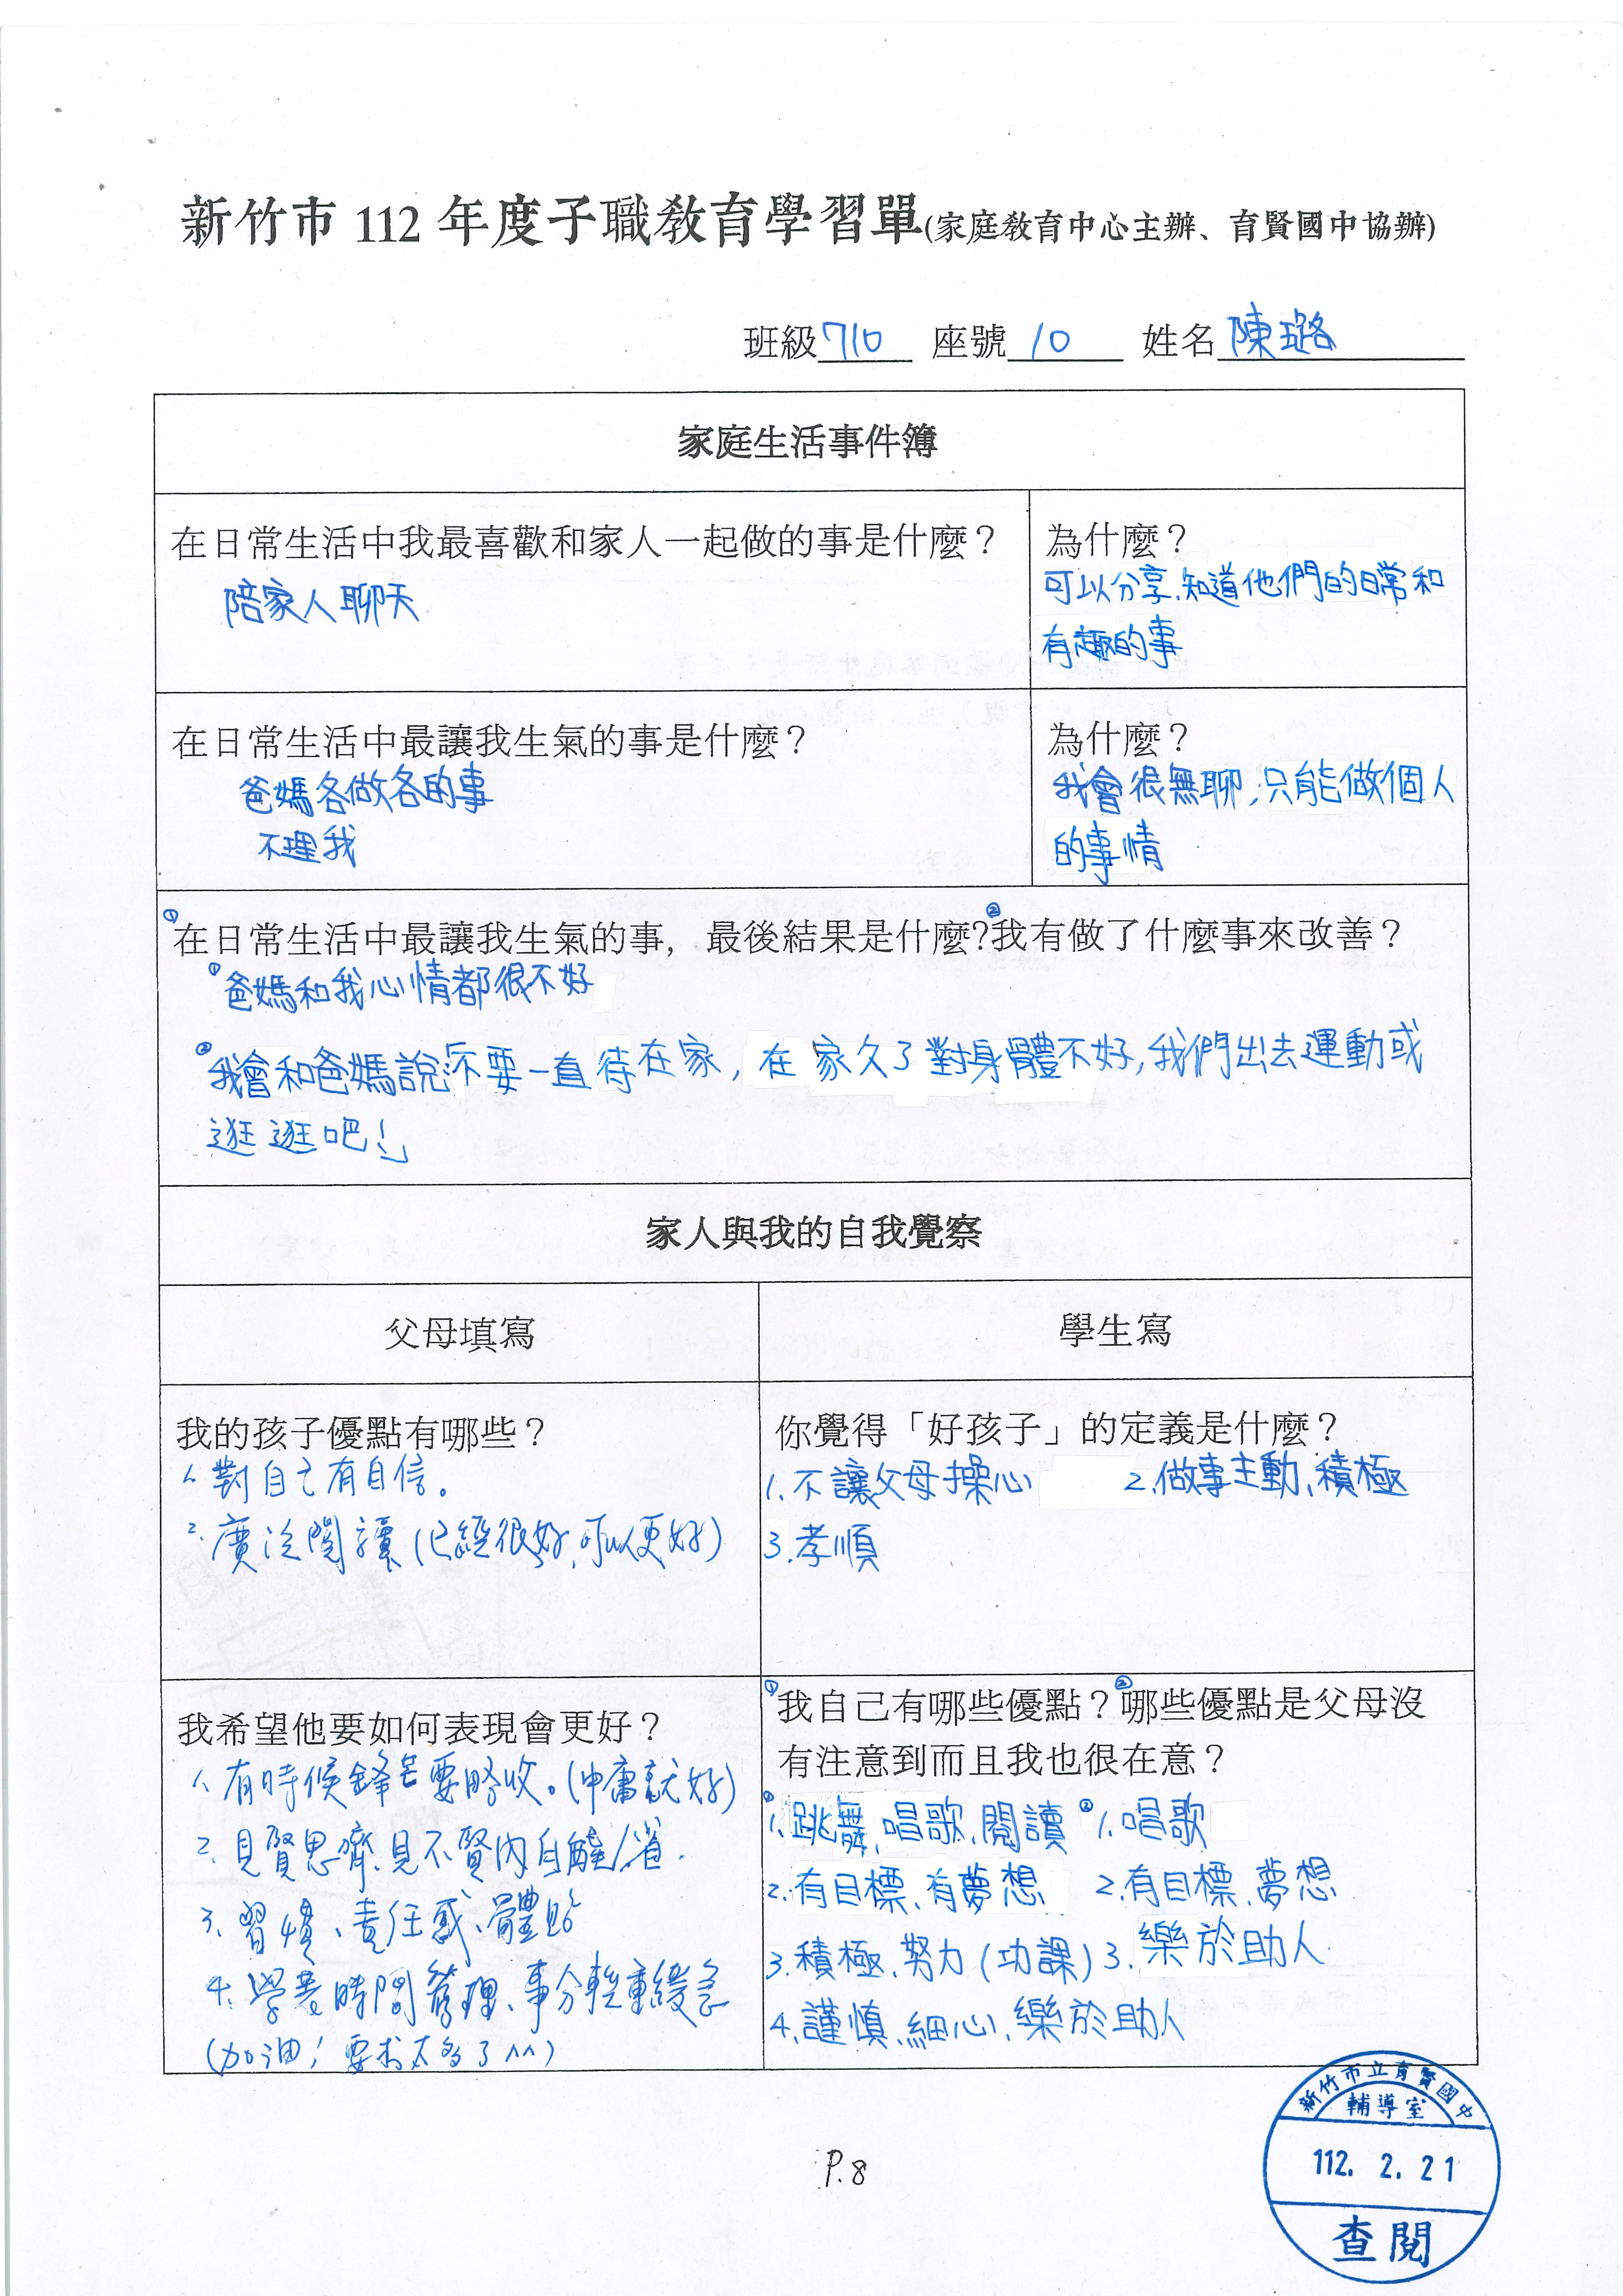 新竹市 112 年度子職教育學習單(家庭教育中心主辦、育賢國中協辦)
班級 710 座號 10 姓名 陳璐
家庭生活事件簿
在日常生活中我最喜歡和家人一起做的事是什麼？
陪家人聊天
為什麼？
可以分享、知道他們的日常和
有趣的事
在日常生活中最讓我生氣的事是什麼？
爸媽各做各的事
不理我
為什麼？
我會很無聊,只能做個人
的事情
①在日常生活中最讓我生氣的事，最後結果是什麼?②我有做了什麼事來改善？
①爸媽和我心情都很不好
②我會和爸媽說「不要一直待在家,在家久了對身體不好,我們出去運動或
逛逛吧!」
家人與我的自我覺察
父母填寫
學生寫
我的孩子優點有哪些？
1.對自己有自信。
2.廣泛閱讀(已經很好,可以更好)
你覺得「好孩子」的定義是什麼？
1.不讓父母操心 2.做事主動、積極
3.孝順
我希望他要如何表現會更好？
1.有時候鋒芒要略收。(中庸就好)
2.見賢思齊、見不賢內自醒/省.
3.習慣、責任感、體貼
4.學著時間管理、事分輕重緩急
(加油!要求太多了^^)
①我自己有哪些優點？②哪些優點是父母沒
有注意到而且我也很在意？
①1.跳舞、唱歌、閱讀 ②1.唱歌
2.有目標、有夢想 2.有目標、夢想
3.積極、努力(功課) 3.樂於助人
4.謹慎、細心、樂於助人
P.8
新竹市立育賢國中
輔導室
112. 2. 21
查閱